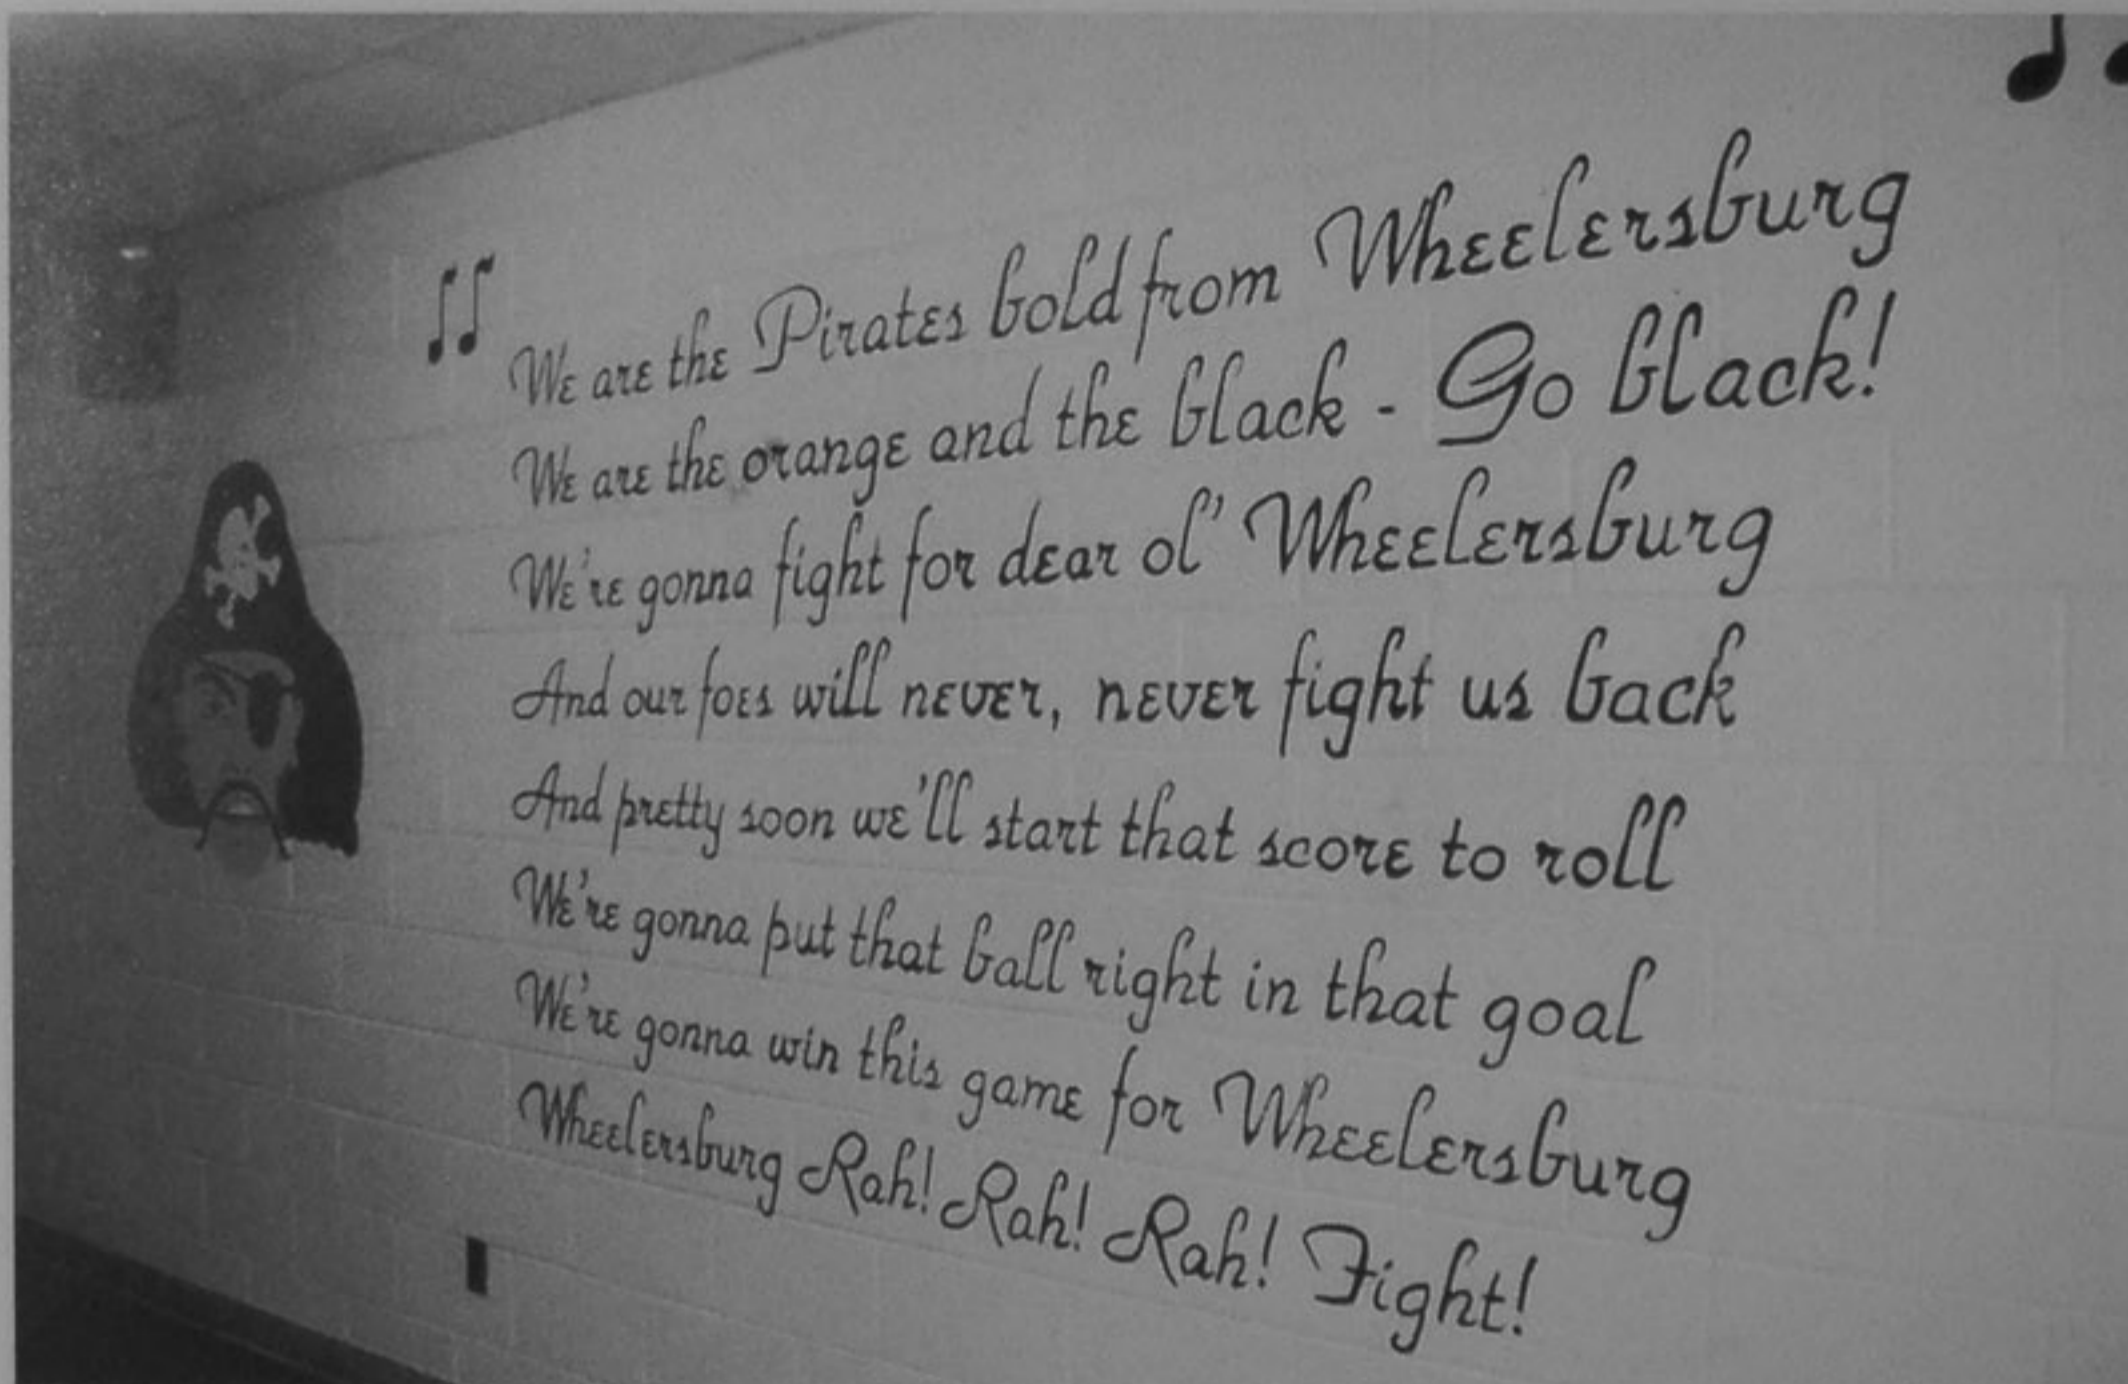 We are the Pirates bold from Wheelersburg
We are the orange and the black - Go black!
We're gonna fight for dear ol' Wheelersburg
And our foes will never, never fight us back
And pretty soon we'll start that score to roll
We're gonna put that ball right in that goal
We're gonna win this game for Wheelersburg
Wheelersburg Rah! Rah! Rah! Fight!